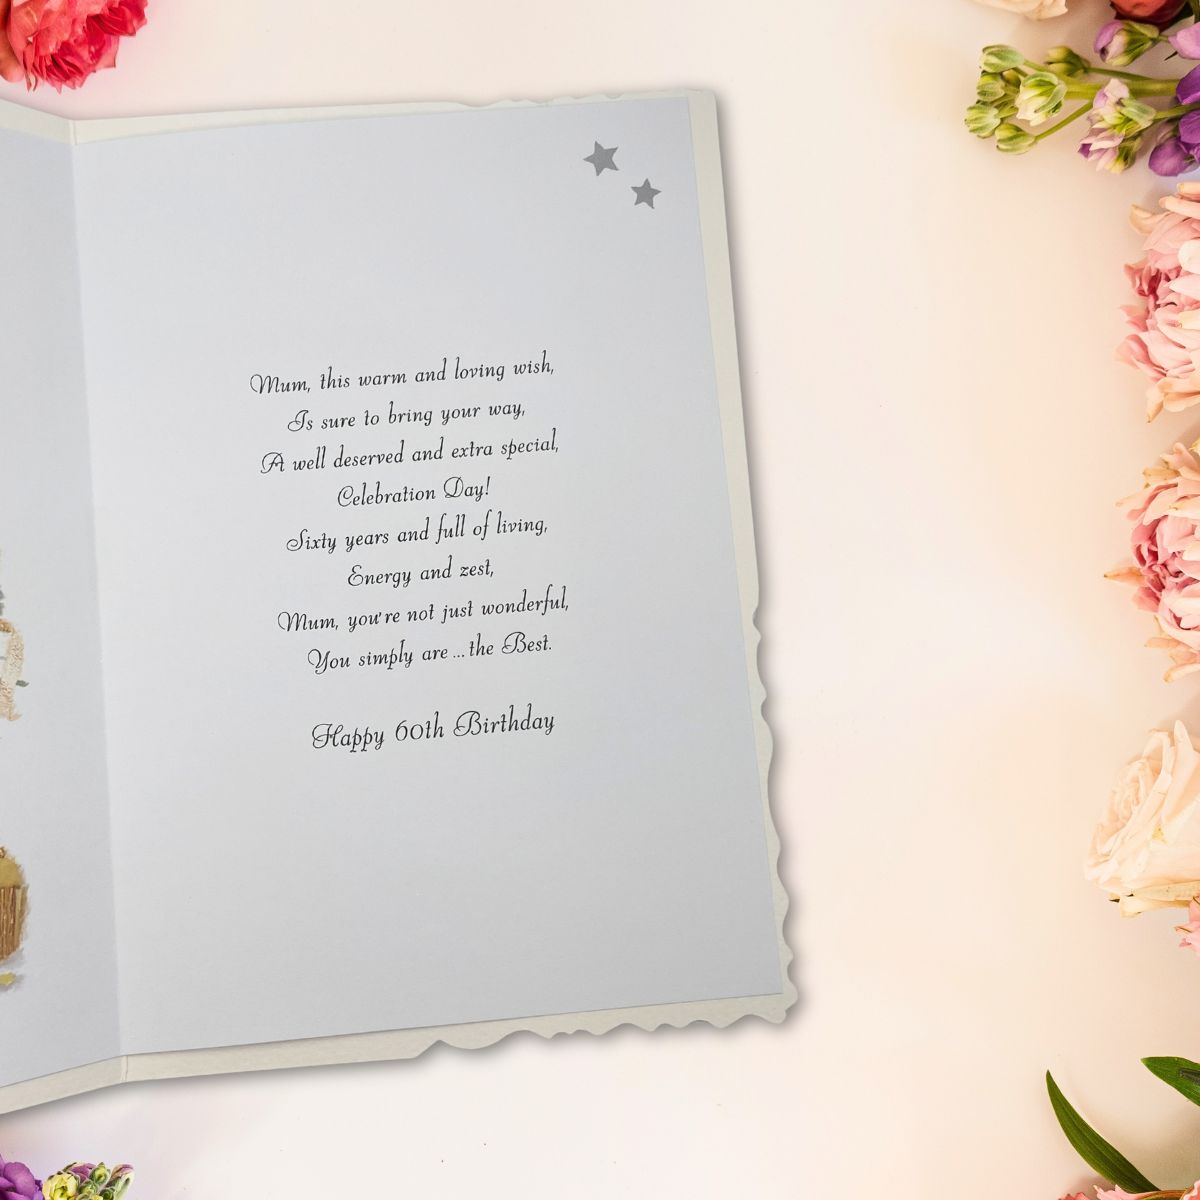 Mum, this warm and loving wish,
Is sure to bring your way,
A well deserved and extra special,
Celebration Day!
Sixty years and full of living,
Energy and zest,
Mum, you're not just wonderful,
You simply are ... the Best.
Happy 60th Birthday